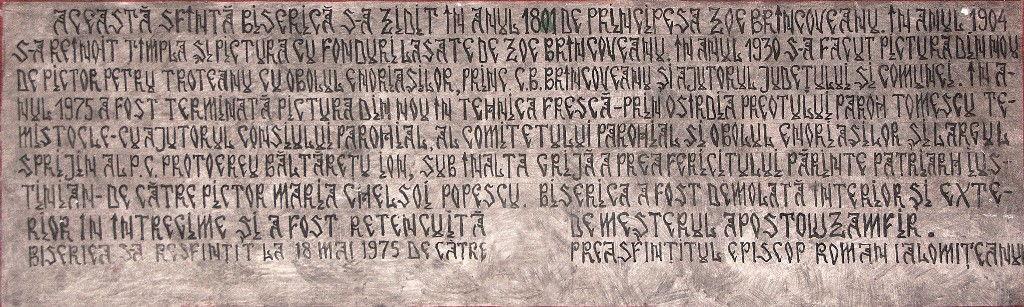 ACEASTĂ SFÎNTĂ BISERICĂ S-A ZIDIT ÎN ANUL 1801 DE PRINCIPESA ZOE BRÎNCOVEANU. ÎN ANUL 1904
S-A REÎNOIT TÎMPLA ȘI PICTURA CU FONDURI LĂSATE DE ZOE BRÎNCOVEANU. ÎN ANUL 1930 S-A FĂCUT PICTURĂ DIN NOU
DE PICTOR PETRU TROTEANU CU OBOLUL ENORIAȘILOR, PRINC C.B. BRÎNCOVEANU ȘI AJUTORUL JUDEȚULUI ȘI COMUNEI. ÎN A-
NUL 1975 A FOST TERMINATĂ PICTURA DIN NOU ÎN TEHNICA FRESCĂ-PRIN OSÎRDIA PREOTULUI PAROH TOMESCU TE-
MISTOCLE-CU AJUTORUL CONSIULUI PAROHIAL, AL COMITETULUI PAROHIAL ȘI OBOLUL ENORIAȘILOR ȘI LARGUL
SPRIJIN AL P.C. PROTOEREU BĂLTĂREȚU ION, SUB ÎNALTA GRIJĂ A PREA FERICITULUI PĂRINTE PATRIARH IUS-
TINIAN-DE CĂTRE PICTOR MARIA CHELSOI POPESCU. BISERICA A FOST DEMOLATĂ INTERIOR ȘI EXTE-
RIOR ÎN ÎNTREGIME ȘI A FOST RETENCUITĂ DE MEȘTERUL APOSTOLU ZAMFIR.
BISERICA SA RESFINȚIT LA 18 MAI 1975 DE CĂTRE PREASFINȚITUL EPISCOP ROMAN IALOMIȚEANU